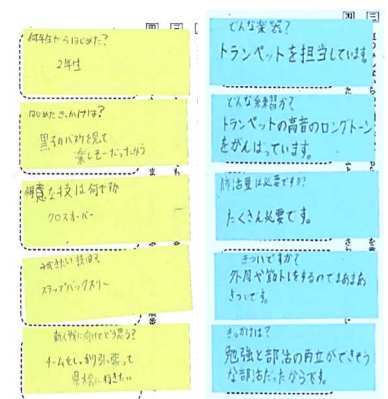 何年生からはじめた?
2年生
はじめたきっかけは?
黒子のバスケを見て
楽しそーだったから
得意な技は何ですか
クロスオーバー
みがきたい技は?
ステップバックスリー
新人戦に向けてどう思う?
チームをしっかり引っ張って
県大会に行きたい
どんな楽器?
トランペットを担当しています
どんな練習か?
トランペットの高音のロングトーン
をがんばっています。
肺活量は必要ですか?
たくさん必要です。
きついですか?
外周や筋トレをするのでまあまあ
きついです。
きっかけは?
勉強と部活の両立ができそう
な部活だったからです。